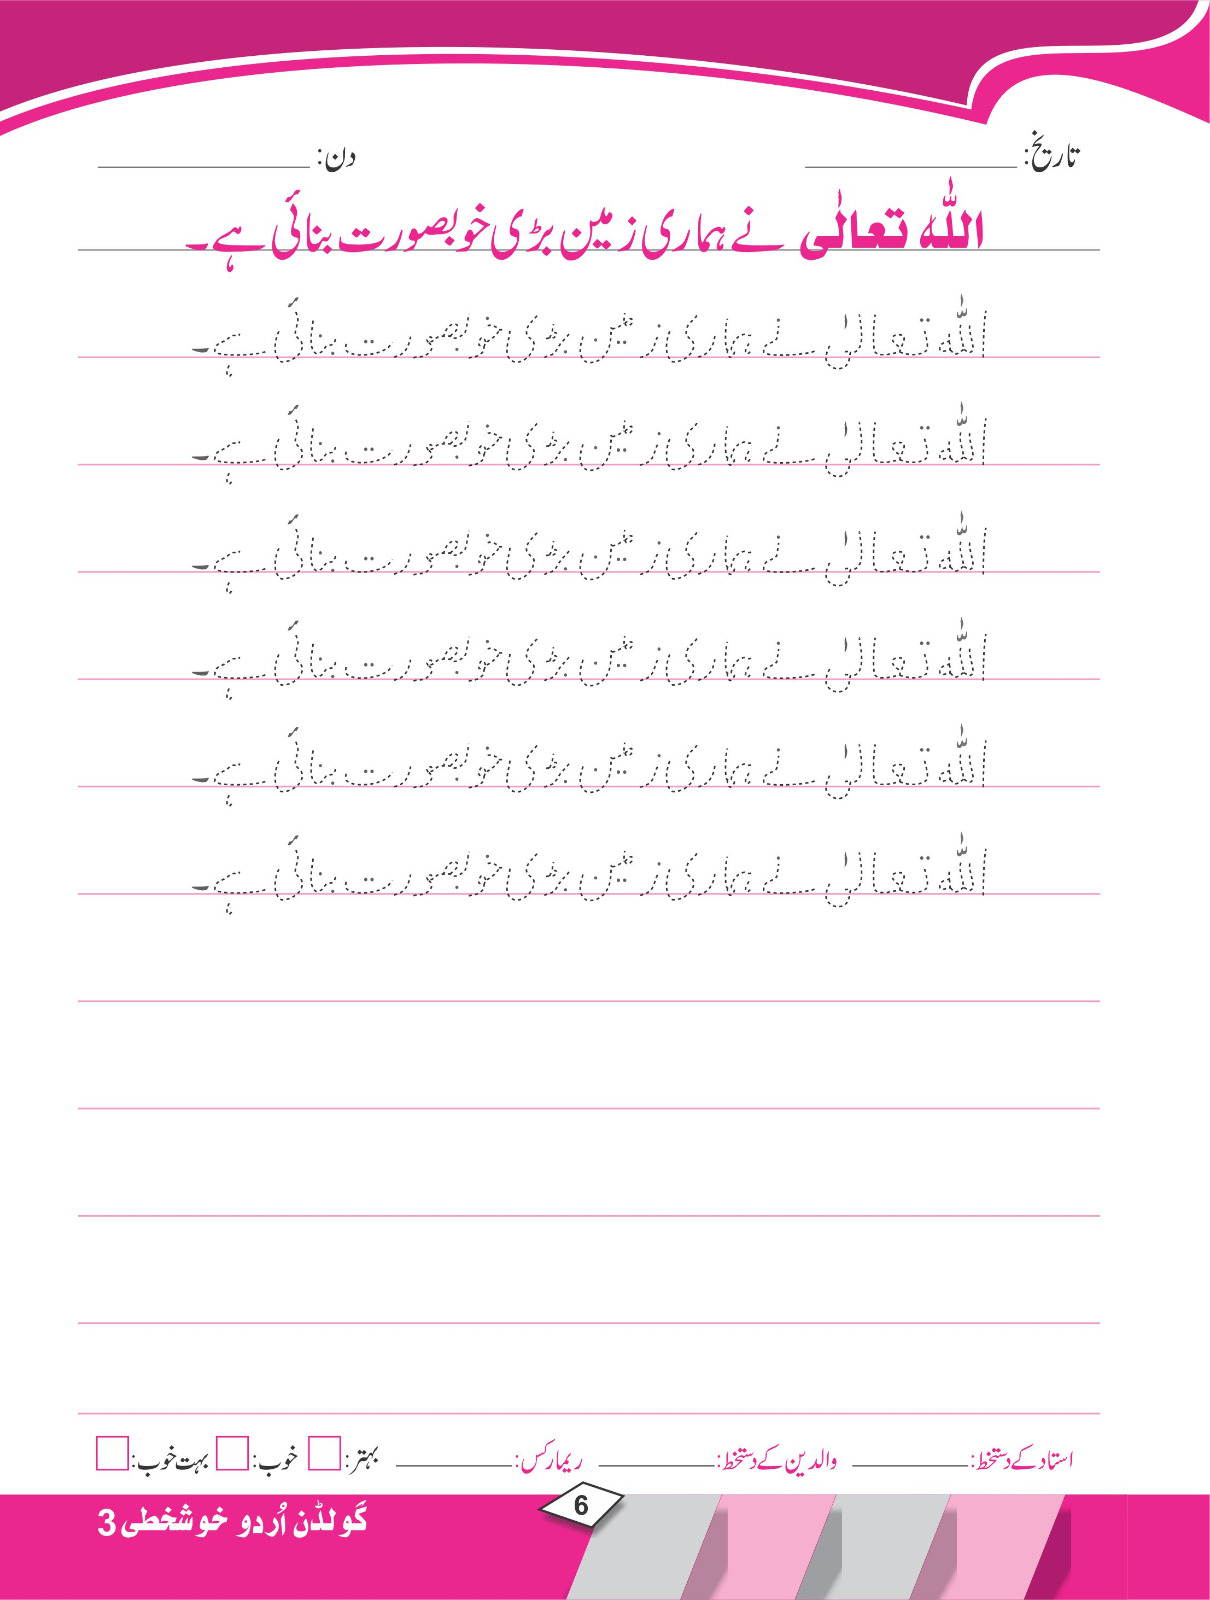 تاریخ: ____________ دن: ____________
اللہ تعالٰی نے ہماری زمین بڑی خوبصورت بنائی ہے۔
اللہ تعالٰی نے ہماری زمین بڑی خوبصورت بنائی ہے۔
اللہ تعالٰی نے ہماری زمین بڑی خوبصورت بنائی ہے۔
اللہ تعالٰی نے ہماری زمین بڑی خوبصورت بنائی ہے۔
اللہ تعالٰی نے ہماری زمین بڑی خوبصورت بنائی ہے۔
اللہ تعالٰی نے ہماری زمین بڑی خوبصورت بنائی ہے۔
اللہ تعالٰی نے ہماری زمین بڑی خوبصورت بنائی ہے۔
استاد کے دستخط: ________ والدین کے دستخط: ________ ریمارکس: ________ بہتر: خوب: بہت خوب:
6
گولڈن اُردو خوشخطی 3